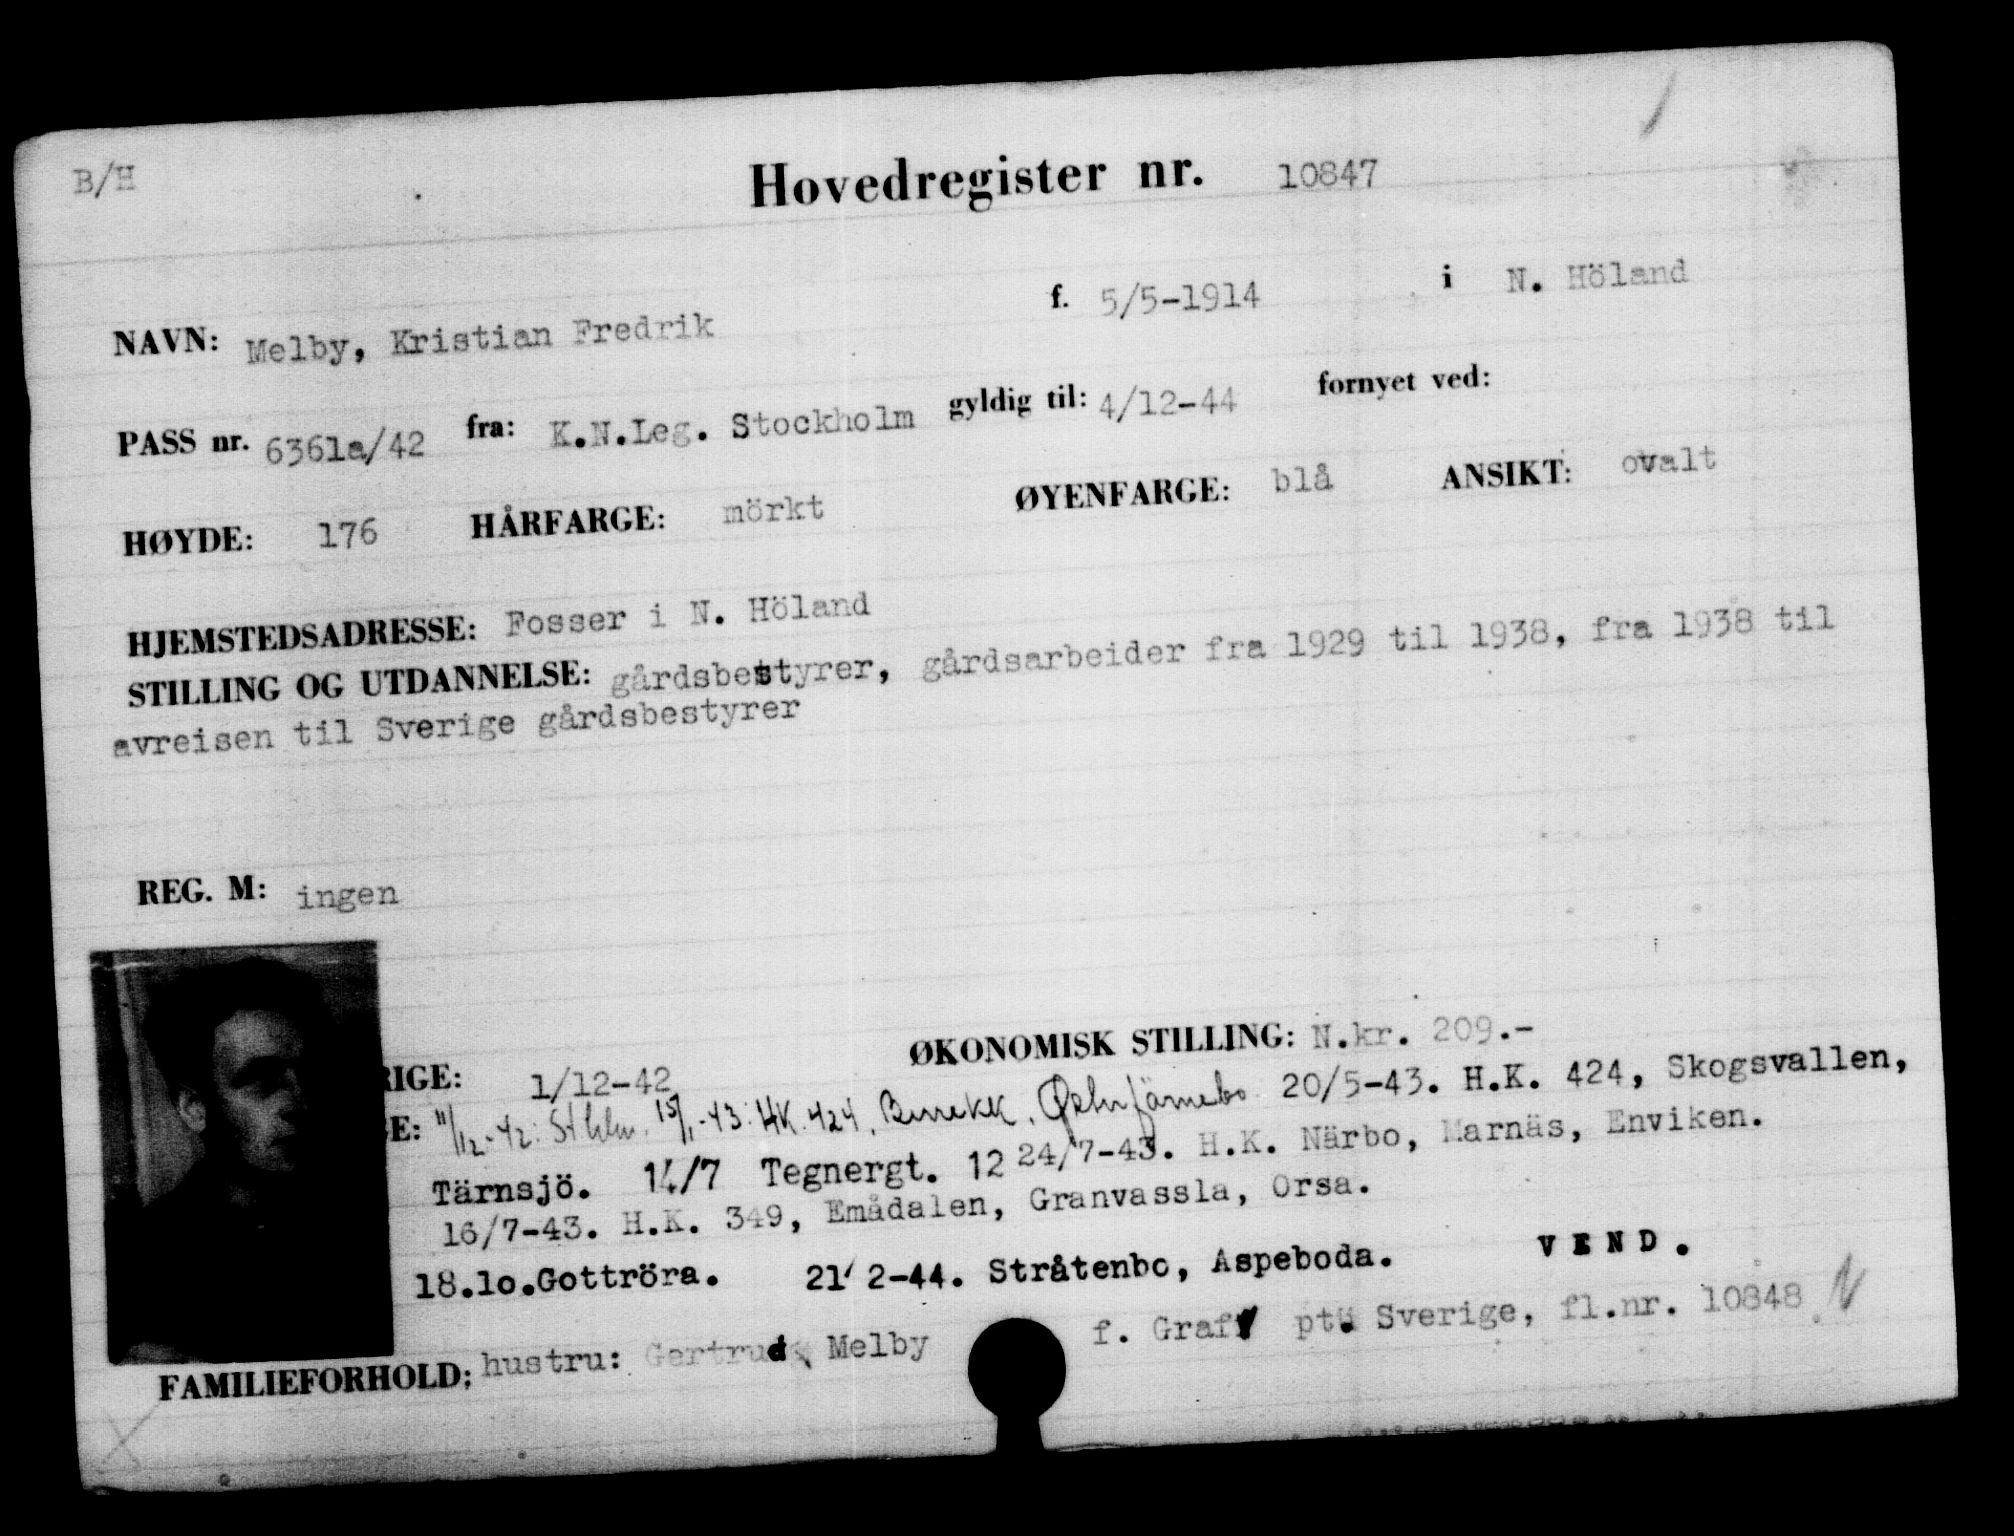 B/H
Hovedregister nr. 10847
NAVN: Melby, Kristian Fredrik f. 5/5-1914 i N. Höland
PASS nr. 6361a/42 fra: K.N.Leg. Stockholm gyldig til: 4/12-44 fornyet ved:
HØYDE: 176 HÅRFARGE: mörkt ØYENFARGE: blå ANSIKT: ovalt
HJEMSTEDSADRESSE: Fosser i N. Höland
STILLING OG UTDANNELSE: gårdsbestyrer, gårdsarbeider fra 1929 til 1938, fra 1938 til
avreisen til Sverige gårdsbestyrer
REG. M: ingen
RIGE: 1/12-42 ØKONOMISK STILLING: N.kr. 209.-
E: 11/12-42: Sthlm. 15/1-43: HK. 424, 20/5-43. H.K. 424, Skogsvallen,
Tärnsjö. 14/7 Tegnergt. 12 24/7-43. H.K. Närbo, Marnäs, Enviken.
16/7-43. H.K. 349, Emådalen, Granvassla, Orsa.
18.10.Gottröra. 21/2-44. Stråtenbo, Aspeboda. VEND.
FAMILIEFORHOLD: hustru: Gertrud Melby f. Graff pt. Sverige, fl.nr. 10848 N